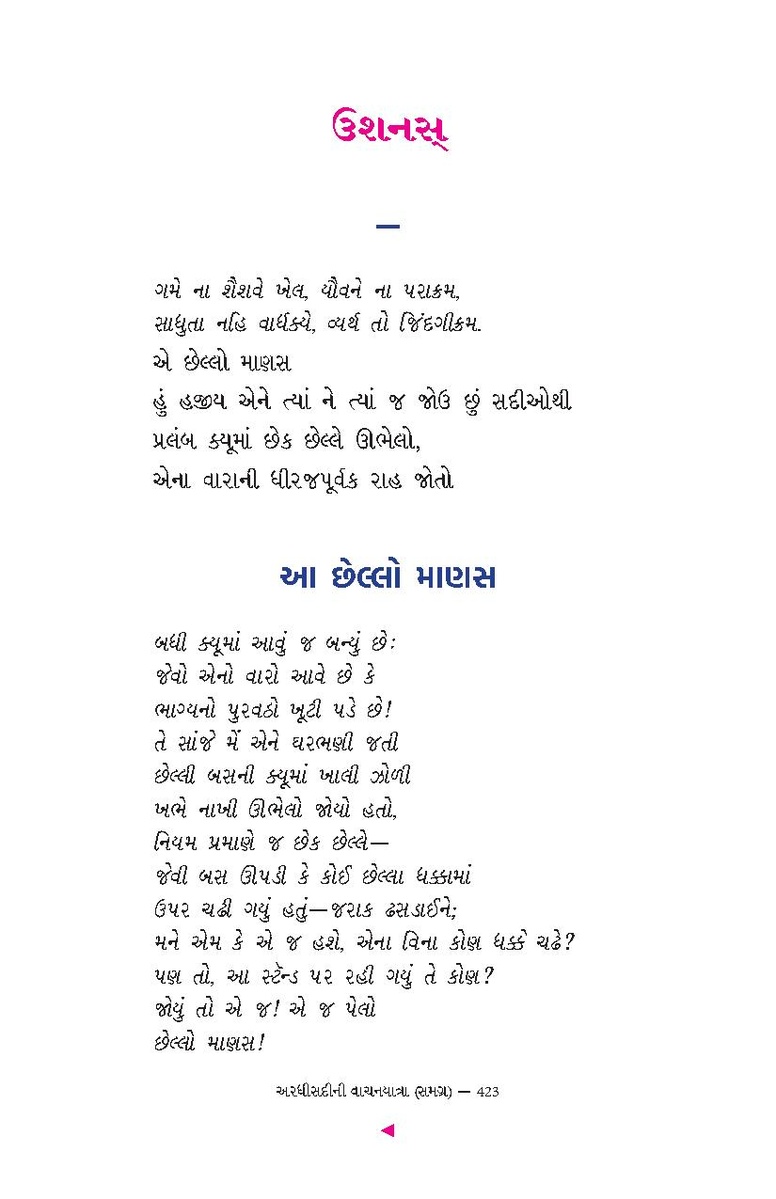 ઉશનસ્
—
ગમે ના શૈશવે ખેલ, યૌવને ના પરાક્રમ,
સાધુતા નહિ વાર્ધક્યે, વ્યર્થ તો જિંદગીક્રમ.
એ છેલ્લો માણસ
હું હજીય એને ત્યાં ને ત્યાં જ જોઉં છું સદીઓથી
પ્રલંબ ક્યૂમાં છેક છેલ્લે ઊભેલો,
એના વારાની ધીરજપૂર્વક રાહ જોતો
આ છેલ્લો માણસ
બધી ક્યૂમાં આવું જ બન્યું છે:
જેવો એનો વારો આવે છે કે
ભાગ્યનો પુરવઠો ખૂટી પડે છે!
તે સાંજે મેં એને ઘરભણી જતી
છેલ્લી બસની ક્યૂમાં ખાલી ઝોળી
ખભે નાખી ઊભેલો જોયો હતો,
નિયમ પ્રમાણે જ છેક છેલ્લે—
જેવી બસ ઊપડી કે કોઈ છેલ્લા ધક્કામાં
ઉપર ચઢી ગયું હતું—જરાક ઢસડાઈને;
મને એમ કે એ જ હશે, એના વિના કોણ ધક્કે ચઢે?
પણ તો, આ સ્ટૅન્ડ પર રહી ગયું તે કોણ?
જોયું તો એ જ! એ જ પેલો
છેલ્લો માણસ!
અરધીસદીની વાચનયાત્રા (સમગ્ર) — 423